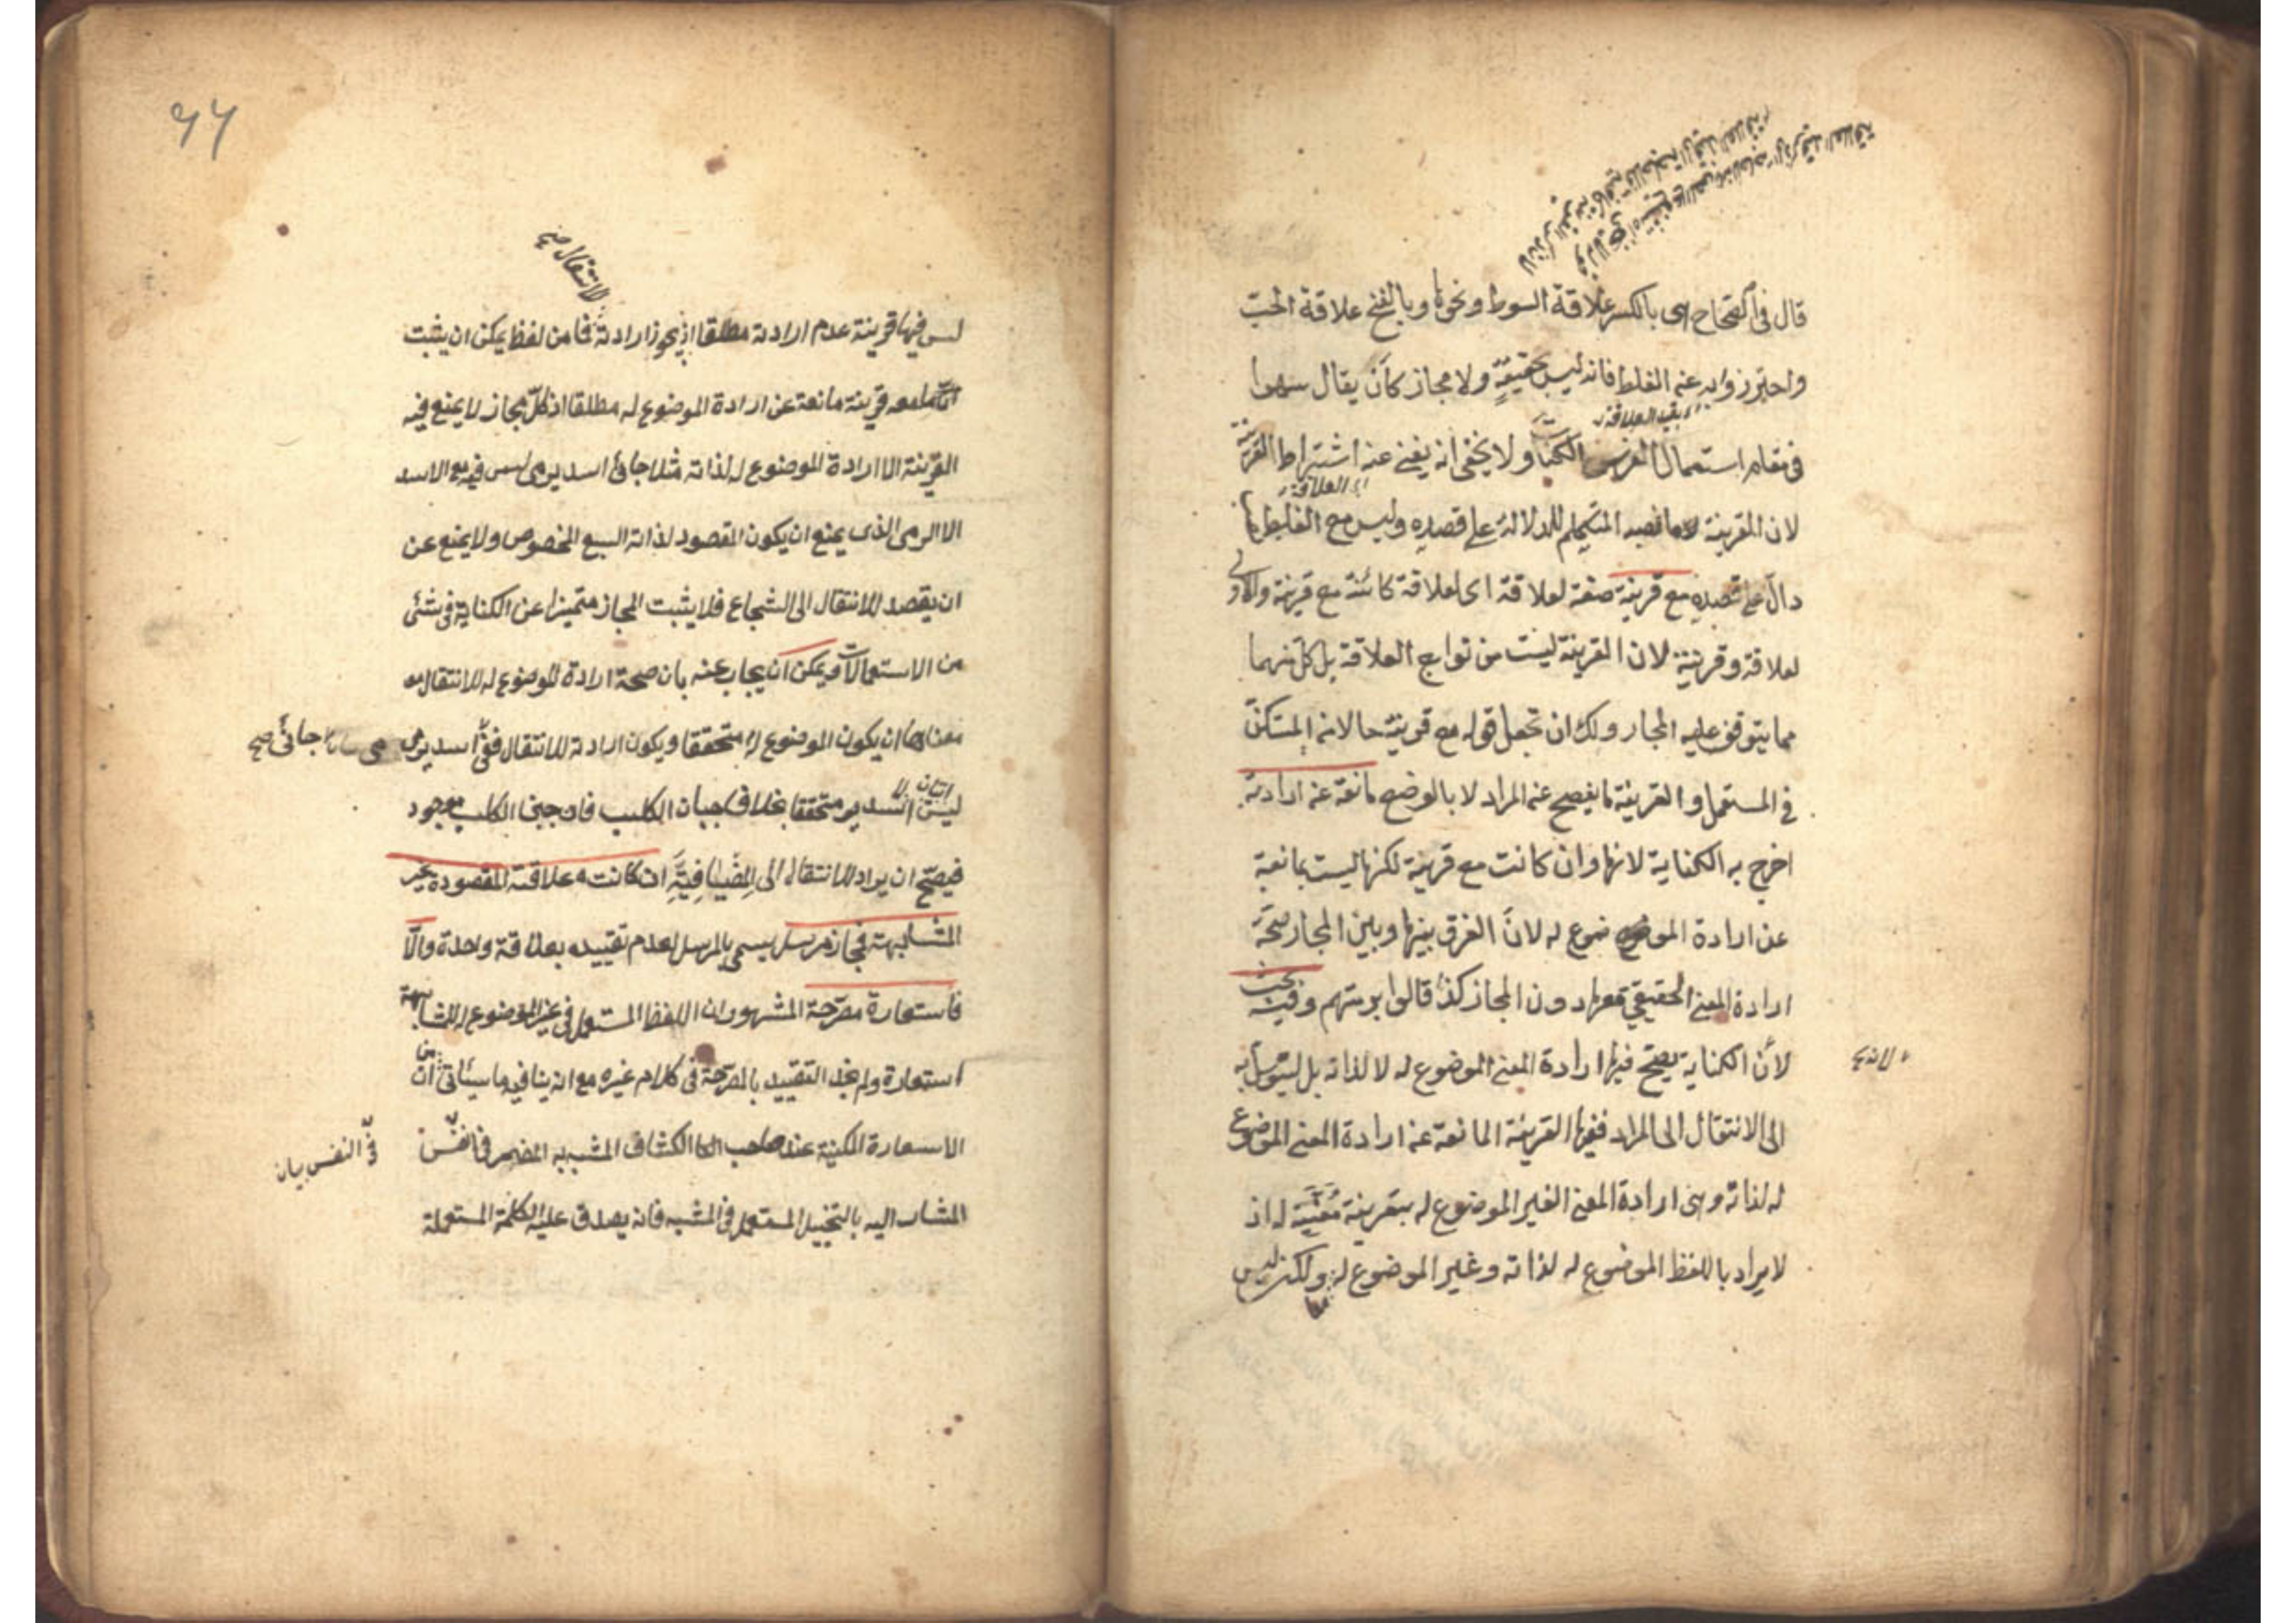 قال في الصحاح هي بالكسر علاقة السوط ونحوها وبالفتح علاقة الحب
واحترز وابه عنه الغلط فانه ليس بحقيقة ولا مجاز كأن يقال سهوا
اى بقيد العلاقة
في مقام استعمال الفرس الكتاب ولا يخفى انه يغني عنه اشتراط القرينة
اى العلاقة
لان القرينة ما نصبه المتكلم للدلالة على قصده وليس مع الغلط ما
دال على قصده مع قرينة صفة لعلاقة اى لعلاقة كائنة مع قرينة والاولى
لعلاقة وقرينة لان القرينة ليست من توابع العلاقة بل كل منهما
مما يتوقف عليه المجاز ولك ان تجعل قوله مع قرينة حالا منه المستكن
في المستعمل والقرينة ما يفصح عنه المراد لا بالوضع مانعة عنه ارادته
اخرج به الكناية لانها وان كانت مع قرينة لكنها ليست بمانعة
عن ارادة الموضوع له لانّ الفرق بينها وبين المجاز صحة
ارادة المعنى الحقيقي معها دون المجاز كذا قالوا برمتهم وفيه بحث
لأن الكناية يصح فيها ارادة المعنى الموضوع له لا لذاته بل ليتوسل به
الى الانتقال الى المراد ففيها القرينة المانعة عنه ارادة المعنى الموضوع
له لذاته وهى ارادة المعنى الغير الموضوع له بقرينة معينة له اذ
لا يراد باللفظ الموضوع له لذاته وغير الموضوع له ولكن ليس
٦٦
للانتقال صح
ليس فيها قرينة عدم ارادته مطلقا اذ يجوز ارادته فما من لفظ يمكن ان يثبت
ان معه قرينة مانعة عن ارادة الموضوع له مطلقا اذ كل مجاز لا يمنع فيه
القرينة الا ارادة الموضوع له لذاته مثلا جائنى اسد يرمى ليس فيه مع الاسد
الا الرمى الذى يمنع ان يكون المقصود لذاته السبع المخصوص ولا يمنع عن
ان يقصد للانتقال الى الشجاع فلا يثبت المجاز متميزا عن الكناية في شئ
من الاستعمالات ويمكن ان يجاب عنه بان صحة ارادة الموضوع له للانتقال معه
معناها ان يكون الموضوع له متحققا ويكون ارادته للانتقال ففى اسد يرمى
جائنى صح
ليس اسد متحققا بخلاف جبان الكلب فان جبن الكلب موجود
فيصح ان يراد للانتقال الى المضيافية ان كانت علاقته المقصودة غير
المشابهة فمجاز مرسل يسمى بالمرسل لعدم تقييده بعلاقة واحدة والّا
فاستعارة مصرحة المشهور ان اللفظ المستعمل في غير الموضوع له للمشابهة
استعارة ولم نجد التقييد بالمصرحة في كلام غيره مع انه ينافيه ما سيأتى من ان
الاستعارة المكنية عند صاحب الكشاف المشبه به المضمر في النفس
في النفس بيان
المشار اليه بالتخييل المستعمل في المشبه فانه يصدق عليه الكلمة المستعملة